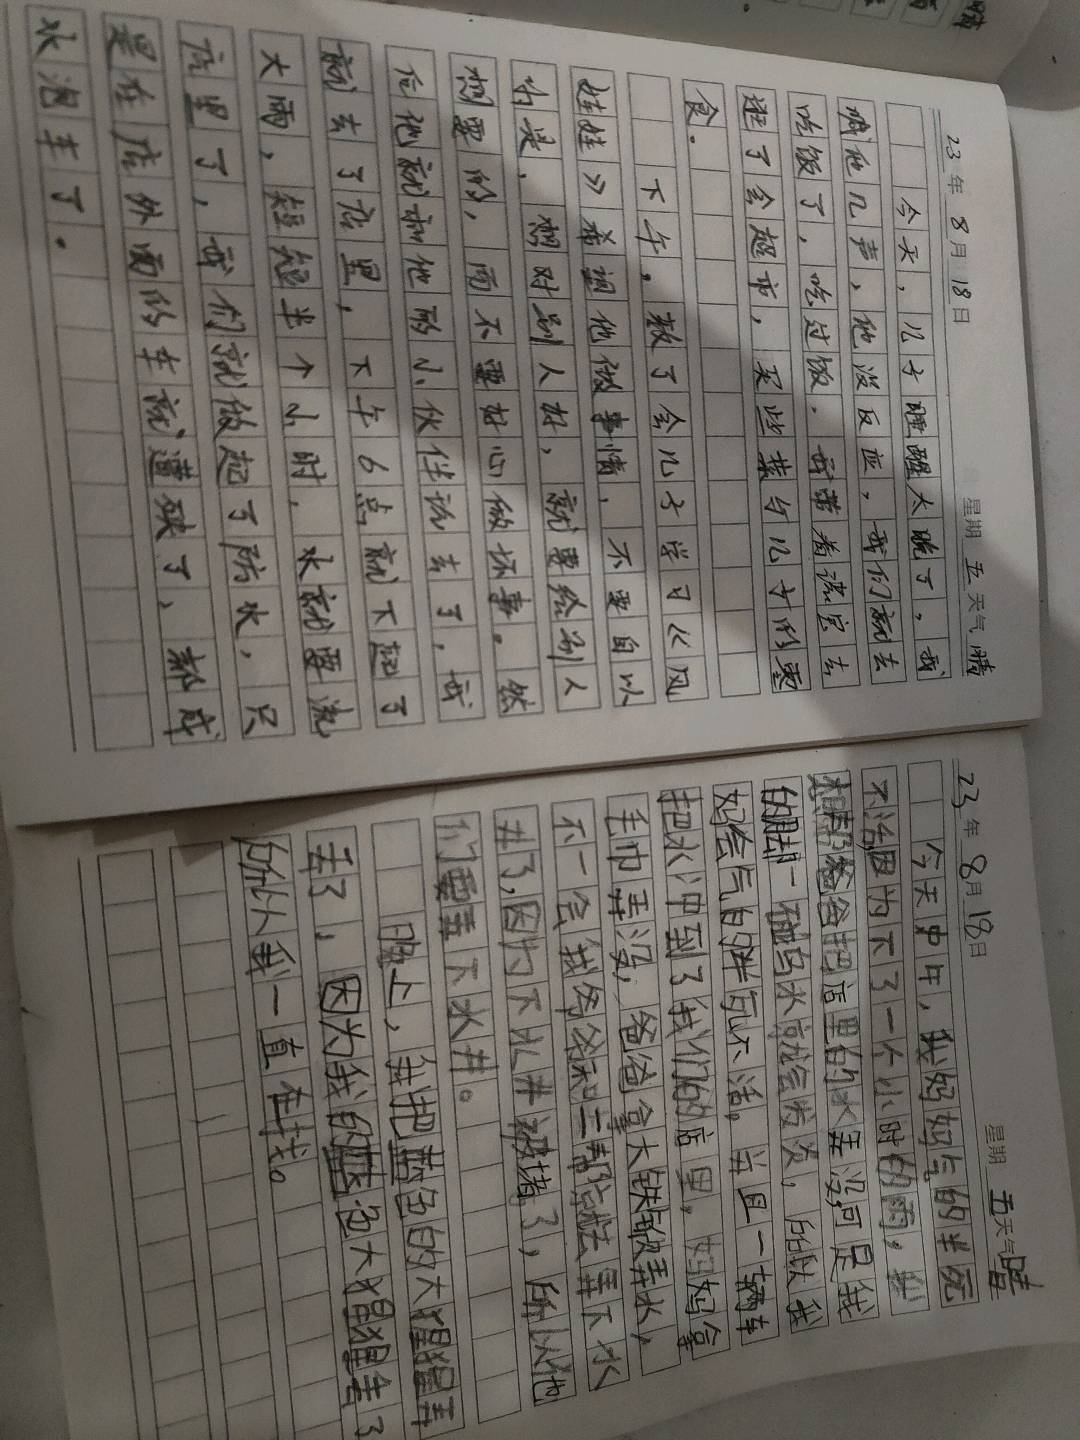 23年8月18日 星期五 天气晴
今天，儿子睡醒太晚了，我
喊他几声，他没反应，我们就去
吃饭了，吃过饭，我带着浩宝去
逛了会超市，买些菜与儿子的零
食。
下午，教了会儿子学习《风
娃娃》希望他做事情，不要自以
为是，想对别人好，就要给别人
想要的，而不要好心做坏事。然
后他就和他的小伙伴玩去了，我
就去了店里，下午6点就下起了
大雨，短短半个小时，水就要流
店里了，我们就做起了防水，只
是在店外面的车就遭殃了，都成
水泡车了。
23年8月18日 星期五 天气晴
今天中午，我妈妈气的半死
不活，因为下了一个小时的雨，
爸爸把店里的水弄没，可是我
的脚一碰乌水就会发炎，所以我
妈会气的半死不活。并且一辆车
把水冲到了我们的店里，妈妈拿
毛巾弄没，爸爸拿大铁锨弄水，
不一会我爷爷和二帮就去弄下水
井了，因为下水井被堵了，所以他
们要弄下水井。
晚上，我把蓝色的大猩猩弄
丢了，因为我的蓝色大猩猩丢了
所以我一直在找。